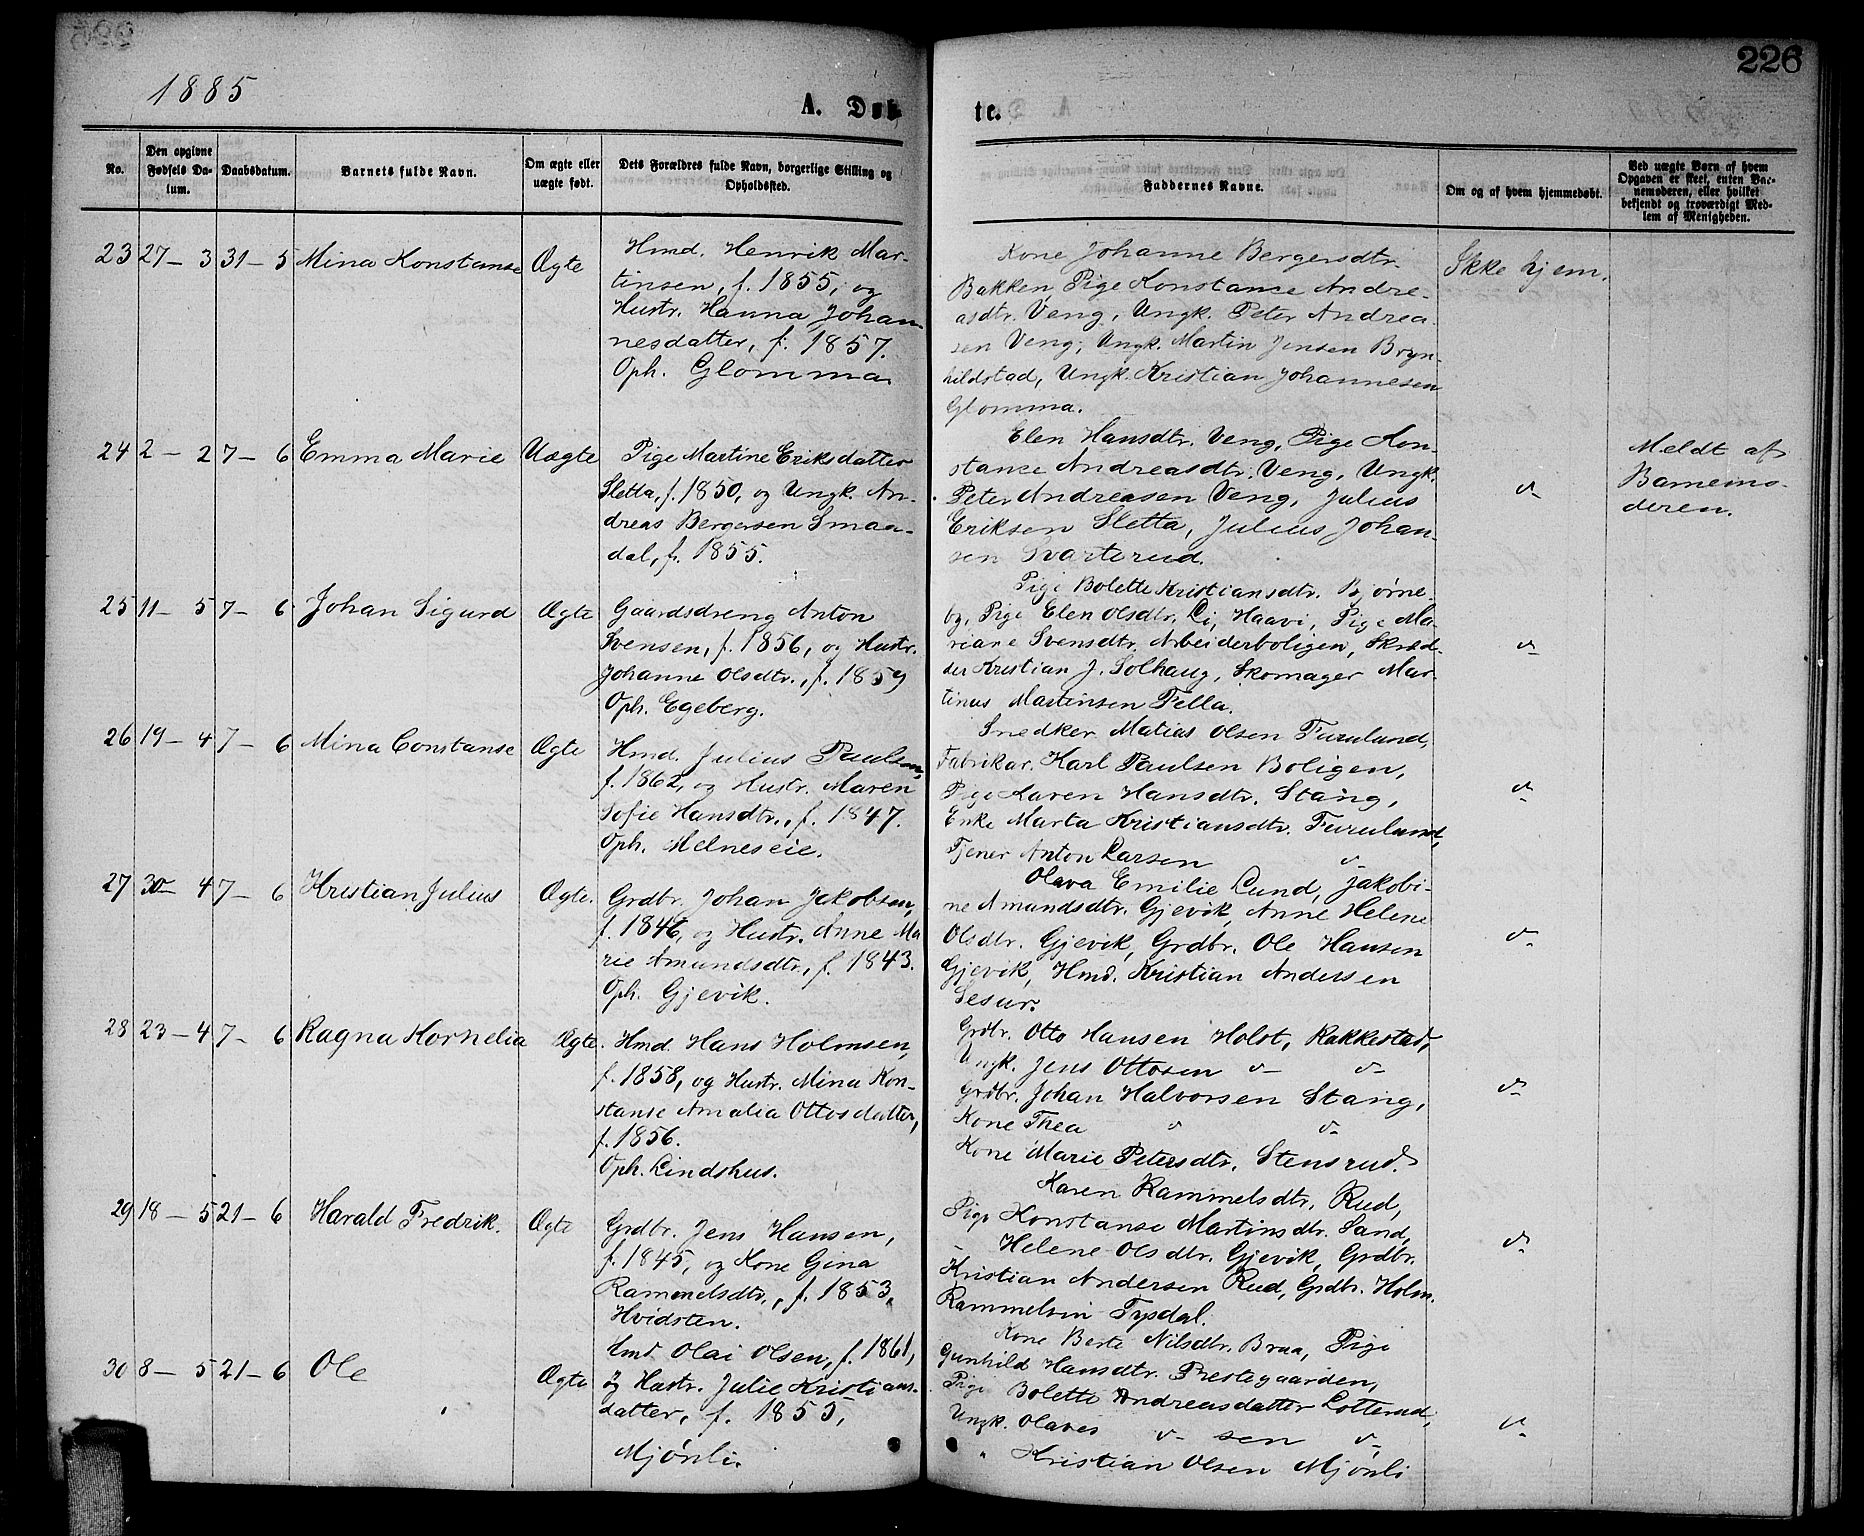 226
1885
A. Døb
te.
No.
Den opgivne Fødsels Datum.
Daabsdatum.
Barnets fulde Navn.
Om ægte eller uægte født.
Dets Forældres fulde Navn, borgerlige Stilling og Opholdssted.
Faddernes Navne.
Om og af hvem hjemmedøbt.
Ved uægte Børn af hvem Opgaven er skeet, enten Barnemoderen, eller hvilket bekjendt og troværdigt Medlem af Menigheden.
23 27 - 3 31 - 5 Mina Konstanse Ægte
Hmd. Henrik Mar-
tinsen, f. 1855, og
Hustr. Hanna Johan-
nesdatter, f. 1857.
Oph. Glomma
Kone Johanne Bergersdtr.
Bakken, Pige Konstance Andre-
asdtr. Veng, Ungk. Peter Andrea-
sen Veng, Ungk. Martin Jensen Bryn-
hildstad, Ungk. Kristian Johannesen
Glomma.
Ikke hjem.
24 2 - 2 7 - 6 Emma Marie Uægte
Pige Martine Eriksdatter
Sletta, f. 1850, og Ungk. An-
dreas Bergersen Smaa-
dal, f. 1855.
Elen Hansdtr. Veng, Pige Kon-
stance Andreasdtr. Veng, Ungk.
Peter Andreasen Veng, Julius
Eriksen Sletta, Julius Johan-
sen Svarterud.
v-
Meldt af
Barnemo-
deren.
25 11 - 5 7 - 6 Johan Sigurd Ægte
Gaardsdreng Anton
Svensen, f. 1856, og Hustr.
Johanne Olsdtr., f. 1859
Oph. Egeberg.
Pige Bolette Kristiansdtr. Bjørne-
by, Pige Elen Olsdtr. Li, Haavi, Pige Ma-
riane Svensdtr. Arbeiderboligen, Skræd-
der Kristian J. Solhaug, Skomager Mar-
tinus Martinsen Fella.
v-
26 19 - 4 7 - 6 Mina Constanse Ægte
Hmd. Julius Paulsen,
f. 1862, og Hustr. Maren
Sofie Hansdtr., f. 1847.
Oph. Melneseie.
Snedker Matias Olsen Furulund,
Fabrikar. Karl Paulsen Boligen,
Pige Karen Hansdtr. Stang,
Enke Marta Kristiansdtr. Furulund,
Tjener Anton Larsen v-
v-
27 30 - 4 7 - 6 Kristian Julius Ægte.
Grdbr. Johan Jakobsen,
f. 1846, og Hustr. Anne Ma
rie Amundsdtr., f. 1843.
Oph. Gjevik.
Olava Emilie Lund, Jakobi-
ne Amundsdtr. Gjevik, Anne Helene
Olsdtr. Gjevik, Grdbr. Ole Hansen
Gjevik, Hmd. Kristian Andersen
v-
28 23 - 4 7 - 6 Ragna Kornelia Ægte.
Hmd. Hans Holmsen,
f. 1858, og Hustr. Mina Kon-
stanse Amalia Ottosdatter,
f. 1856.
Oph. Lindshus.
Grdbr. Otto Hansen Holst, Rakkestad,
Ungk. Jens Ottosen v- v-
Grdbr. Johan Halvorsen Stang,
Kone Thea v v-
Kone Marie Petersdtr. Stensrud.
v-
29 18 - 5 21 - 6 Harald Fredrik. Ægte
Grdbr. Jens Hansen,
f. 1845, og Kone Gina
Rammelsdtr., f. 1853,
Hvidsten.
Karen Rammelsdtr. Rud,
Pige Konstanse Martinsdtr. Sand,
- Helene Olsdtr. Gjevik, Grdbr.
Kristian Andersen Rud, Grdbr. Holm.
Rammelsen Typdal.
v-
30 8 - 5 21 - 6 Ole Ægte
Hmd Olai Olsen, f. 1861,
og Hustr. Julie Kristians-
datter, f. 1855,
Mjönli.
Kone Berte Nilsdtr. Braa, Pige
Gunhild Hansdtr. Prestegaarden,
Pige Bolette Andreasdatter Lotterud,
Ungk. Olaves v- sen v-
" Kristian Olsen Mjönli
v-